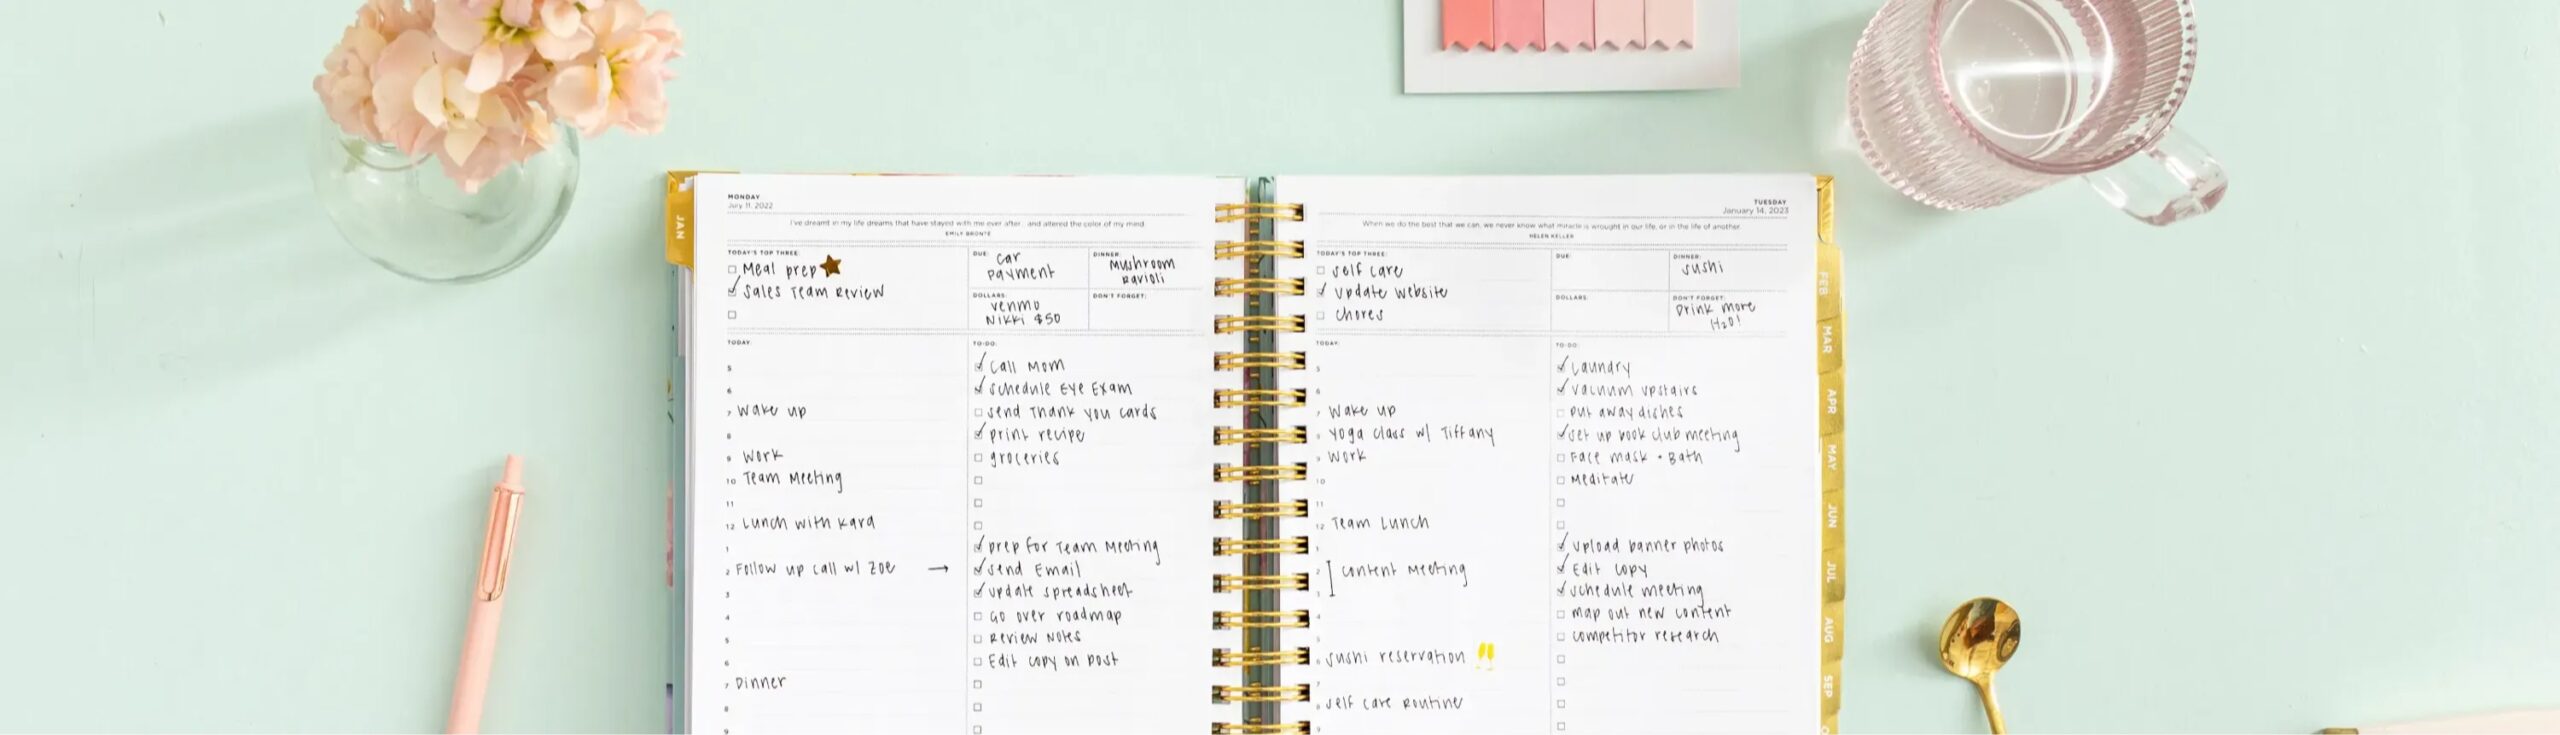 MONDAY
July 11, 2022
I've dreamt in my life dreams that have stayed with me ever after, and altered the color of my mind.
EMILY BRONTE
TODAY'S TOP THREE:
Meal prep
Sales Team Review
DUE:
car
payment
DINNER:
Mushroom
Ravioli
DOLLARS:
venmo
Nikki $50
DON'T FORGET:
TODAY:
5
6
7 Wake up
8
9 Work
10 Team Meeting
11
12 Lunch with Kara
1
2 Follow up call w/ Zoe →
3
4
5
6
7 Dinner
8
9
TO-DO:
Call Mom
Schedule Eye Exam
Send Thank you cards
print recipe
groceries
prep for Team Meeting
Send Email
update spreadsheet
Go over roadmap
Review Notes
Edit copy on post
TUESDAY
January 14, 2023
When we do the best that we can, we never know what miracle is wrought in our life, or in the life of another.
HELEN KELLER
TODAY'S TOP THREE:
Self care
Update Website
Chores
DUE:
DINNER:
Sushi
DOLLARS:
DON'T FORGET:
Drink more
H2O!
TODAY:
5
6
7 Wake up
8 Yoga class w/ Tiffany
9 Work
10
11
12 Team Lunch
1
2 Content Meeting
3
4
5
6 Sushi reservation
7
8 Self care Routine
9
TO-DO:
Laundry
Vacuum upstairs
put away dishes
Set up book club meeting
Face mask + Bath
Meditate
upload banner photos
Edit copy
schedule meeting
map out new content
competitor research
JAN
FEB
MAR
APR
MAY
JUN
JUL
AUG
SEP